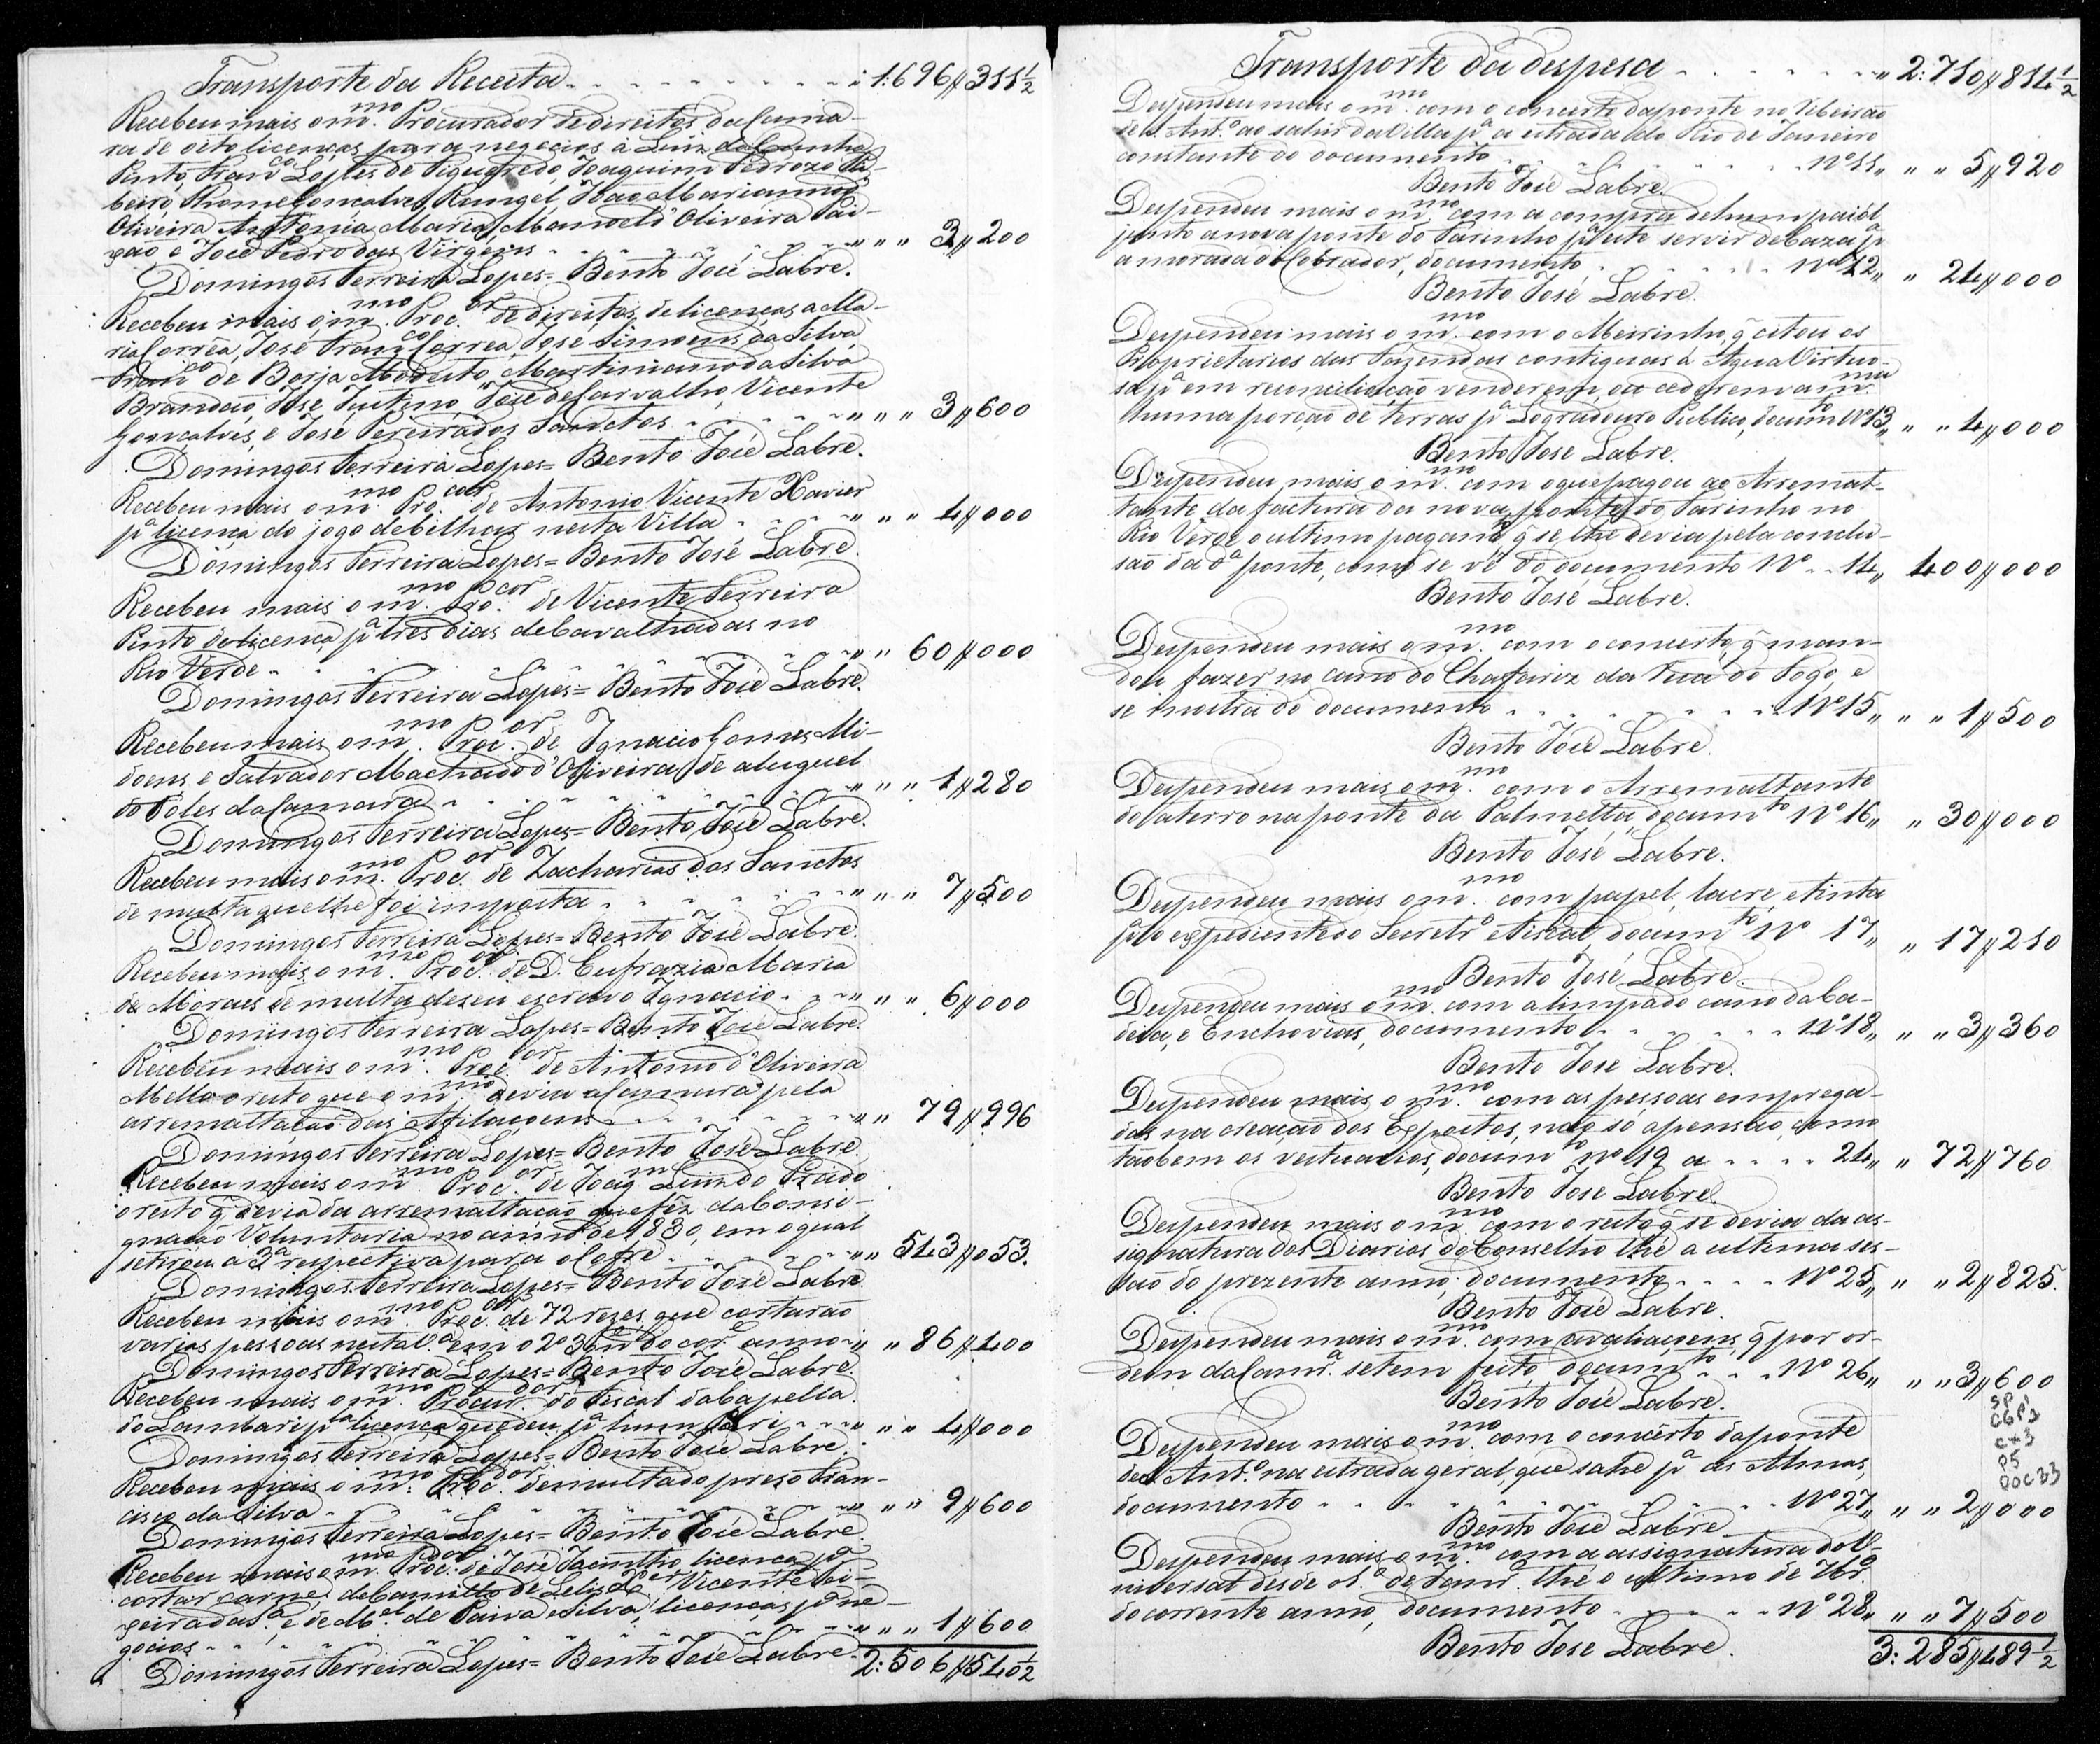 Transporte da Receita . . . . . . . . . 1:696$311½
Recebeu mais o m.mo Procurador de direitos da Cama-
ra de oito licenças para negocios á Luiz da Cunha
Pinto, Fran.co Lopes de Figueredo, Joaquim Pedrozo Ri-
beiro, Thome Gonçalves Rangel, João Marianno d'
Oliveira, Antonia Maria, Manoel d'Oliveira Pai-
xão e José Pedro das Virgens . . . . . " " " 3$200
Domingos Ferreira Lopes = Bento José Labre.
Recebeu mais o m.mo Proc.or de direitos de licenças a Ma-
ria Corrêa, José Fran.co Correa, José Simoens da Silva,
Fran.co de Borja Modesto, Martiniano da Silva
Brandão, José Justino, José de Carvalho, Vicente
Gonçalves, e José Pereira dos Sanctos . . . . " " " 3$600
Domingos Ferreira Lopes = Bento José Labre.
Recebeu mais o m.mo Pro.cor de Antonio Vicente Xavier
p.a licença do jogo de bilhar nesta Villa . . . . " " " 4$000
Domingos Ferreira Lopes = Bento José Labre.
Recebeu mais o m.mo Pro.cor de Vicente Ferreira
Pinto de licença p.a tres dias de Cavalhadas no
Rio Verde . . . . . . . . " " 60$000
Domingos Ferreira Lopes = Bento José Labre.
Recebeu mais o m.mo Proc.or de Ignacio Gomes Mi-
doens, e Salvador Machado d'Oliveira, de aluguel
do Foles da Camara . . . . . . . " " " 1$280
Domingos Ferreira Lopes = Bento José Labre.
Recebeu mais o m.mo Proc.or de Zacharias dos Sanctos
de multa que lhe foi imposta . . . . . . " " " 7$500
Domingos Ferreira Lopes = Bento José Labre.
Recebeu mais o m.mo Proc.or de D. Eufrazia Maria
de Moraes de multa de seu escravo Ignacio . . . " " " 6$000
Domingos Ferreira Lopes = Bento José Labre.
Recebeu mais o m.mo Proc.or de Antonio d'Oliveira
Mello o resto que o m.mo devia a Camara pela
arremattação das Afilaçoens . . . . . . . " " 79$996
Domingos Ferreira Lopes = Bento José Labre.
Recebeu mais o m.mo Proc.or de Joaq.m do Prado
o resto q̃ devia da arremattação que fez da Consi-
gnação Voluntaria no anno de 1830, em o qual
se tirou a 3.a respectiva para o Cofre . . . . " " 543$053.
Domingos Ferreira Lopes = Bento José Labre.
Recebeu mais o m.mo Proc.or de 72 rezes que cortarão
varias pessoas nesta V.a em o 2º do cor. anno " " 86$400
Domingos Ferreira Lopes = Bento José Labre.
Recebeu mais o m.mo Procur.dor do Fiscal da Capella
do Lambari p.a licença que deu p.a hum . . . " " " 4$000
Domingos Ferreira Lopes = Bento José Labre.
Recebeu mais o m.mo Proc.or de multa do prezo Fran-
cisco da Silva . . . . . . . " " " 9$600
Domingos Ferreira Lopes = Bento José Labre.
Recebeu mais o m.mo Proc.or de José Jacintho licença p.a
cortar carne, de Camillo de Lelis Vicente
e de M.el de Paiva e Silva, licenças p.a ne-
gocios . . . . . . . " " " 1$600
Domingos Ferreira Lopes = Bento José Labre. 2:506$540½
Transporte da despesa . . . . . . " 2:710$814½
Despendeu mais o m.mo com o concerto da ponte no Ribeirão
de S. Ant.o ao sahir da Villa p.a a estrada do Rio de Janeiro
constante do documento . . . . . Nº 11 " " " 5$920
Bento José Labre.
Despendeu mais o m.mo com a compra de hum paiól
junto a nova ponte do Farinho p.a este servir de Caza p.a
a morada do Cobrador, documento . . . . . Nº 12 " " 24$000
Bento José Labre.
Despendeu mais o m.mo com o Meirinho, q̃ citou os
Proprietarios das Fazendas contiguas á Agua Virtuo-
sa p.a em reconciliação venderem, ou cederem a m.ma
huma porção de terras p.a Logradouro Publico, docum.to Nº 13 " " " 4$000
Bento José Labre.
Despendeu mais o m.mo com o que pagou ao Arremat-
tante da factura da nova ponte do Farinho no
Rio Verde o ultimo pagam.to q̃ se lhe devia pela conclu-
são da d.a ponte, como se vê do documento Nº . . 14 " 400$000
Bento José Labre.
Despendeu mais o m.mo com o concerto, q̃ man-
dou fazer no cano do Chafariz da Rua do Fogo, e
se mostra do documento . . . . . . . . Nº 15 " " " 1$500
Bento José Labre.
Despendeu mais o m.mo com o Arremattante
do aterro na ponte da Palmella docum.to Nº 16 " " 30$000
Bento José Labre.
Despendeu mais o m.mo com papel, lacre, e tinta
p.a o expediente do Secretr.o e Fiscal, docum.to Nº 17 " " 17$210
Bento José Labre.
Despendeu mais o m.mo com a limpa do cano da Ca-
deia, e Enchovias, documento . . . . . Nº 18 " " " 3$360
Bento José Labre.
Despendeu mais o m.mo com as pessoas emprega-
das na creação dos Expostos, não só a pensão, como
taõbem os vestuarios, docum.to Nº 19 a . . . . 24 " " 72$760
Bento José Labre.
Despendeu mais o m.mo com o resto q̃ se devia da as-
signatura dos Diarios do Conselho thé a ultima ses-
são do prezente anno, documento . . . . Nº 25 " " " 2$825.
Bento José Labre.
Despendeu mais o m.mo com avaliaçoens, q̃ por or-
dem da Camr.a se tem feito docum.to . . . Nº 26 " " " 3$600
Bento José Labre.
SP
CGP3
cx3
P5
DOC33
Despendeu mais o m.mo com o concerto da ponte
de S. Ant.o na estrada geral, que sahe p.a as Almas,
documento . . . . . . . . Nº 27 " " " 2$000
Bento José Labre.
Despendeu mais o m.mo com a assignatura do U-
niversal desde o 1.º de Janr.o thé o ultimo de 7br.o
do corrente anno, documento . . . . . Nº 28 " " " 7$500
Bento José Labre. 3:285$489½